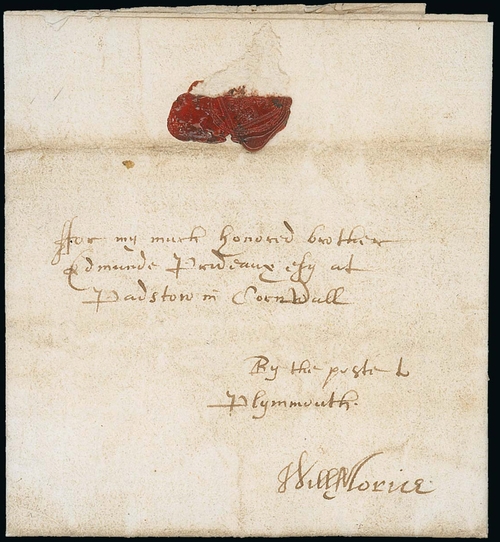 For my much honored brother
Edmunde Prideaux esq at
Padstow in Cornwall
By the poste to
Plymmouth.
Will Morice